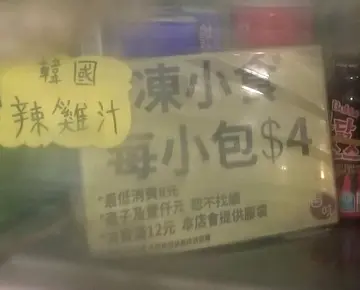 韓國
辣雞汁
凍小食
每小包$4
*最低消費8元
*毫子及壹仟元 恕不找續
*消費滿12元 本店會提供膠袋